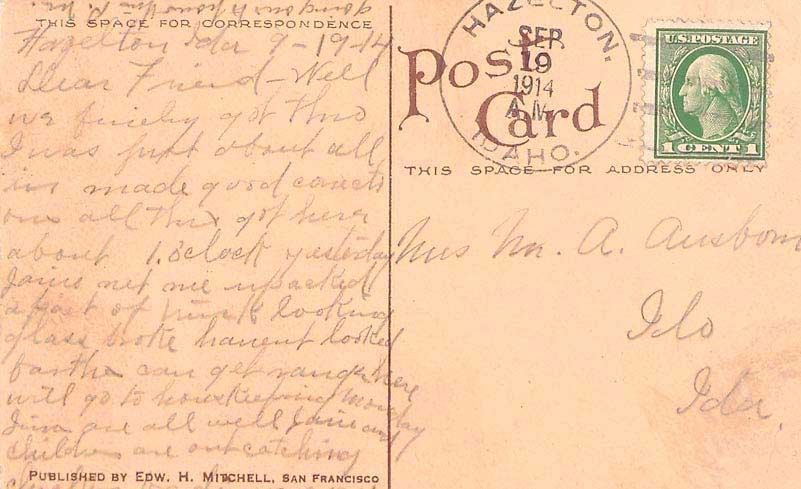 THIS SPACE FOR CORRESPONDENCE
Hazelton Ida 9-19-14
Dear Friend - Well
we finely got thru
I was just about all
in made good conecti
ons all thru got here
about 1. oclock yesterday
Janie met me unpacked
a part of junk looking
glass broke havent looked
farther can get range here
will go to housekeeping Monday
Jim are all well Janie and
children are out catching
PUBLISHED BY EDW. H. MITCHELL, SAN FRANCISCO
Post Card
HAZELTON,
SEP
19
1914
A.M.
IDAHO.
U.S. POSTAGE
1 CENT 1
THIS SPACE FOR ADDRESS ONLY
Mrs Wm. A. Ausbom
Ilo
Ida.